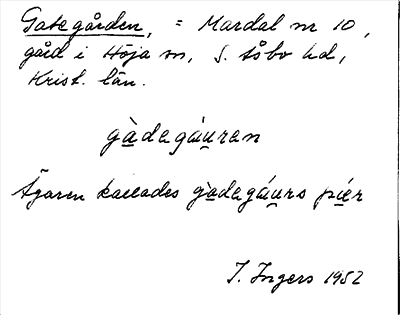 Gategården, = Mardal nr 10,
gård i Höja sn, S. Åsbo hd,
Krist. län.
gàdegáuren
Ägaren kallades gàdegáurs piér
I. Ingers 1952